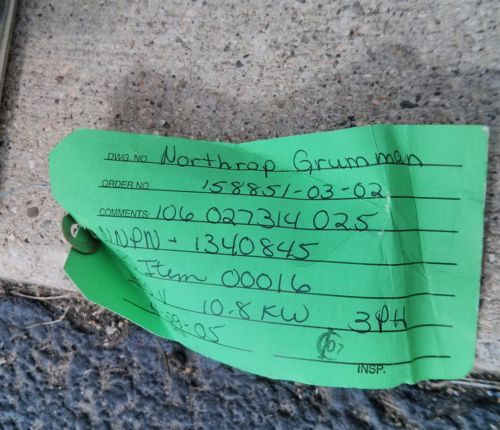 DWG. NO. Northrop Grumman
ORDER NO. 158851-03-02
COMMENTS: 106 027314 025
NNPN - 1340845
Item 00016
10.8 KW 3PH
-05
INSP.